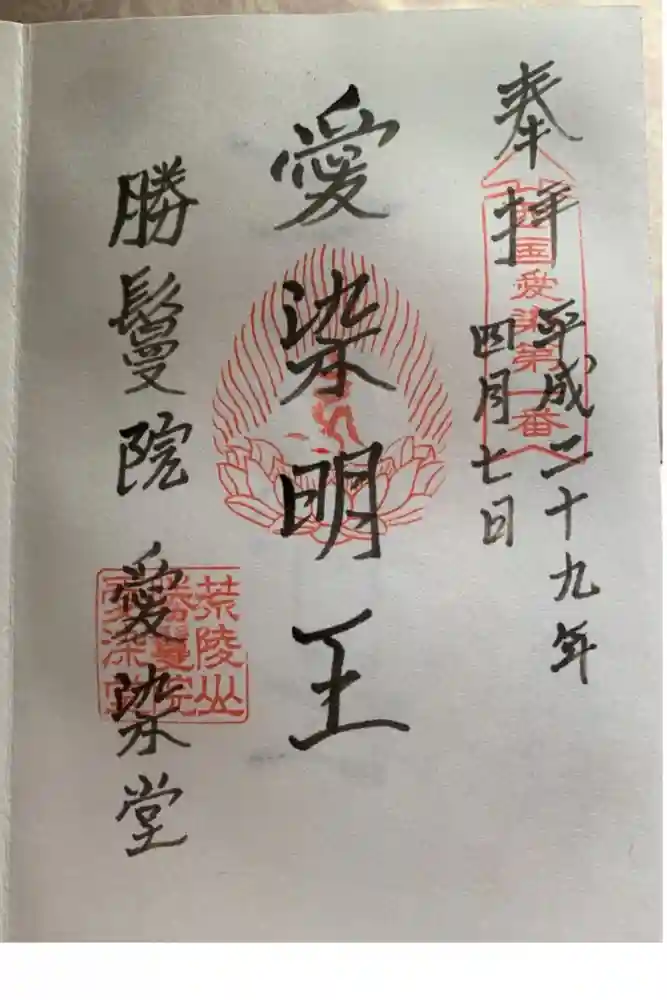 奉拝
西国愛染第一番
平成二十九年
四月七日
愛染明王
勝鬘院 愛染堂
荒陵山
勝鬘院
愛染堂